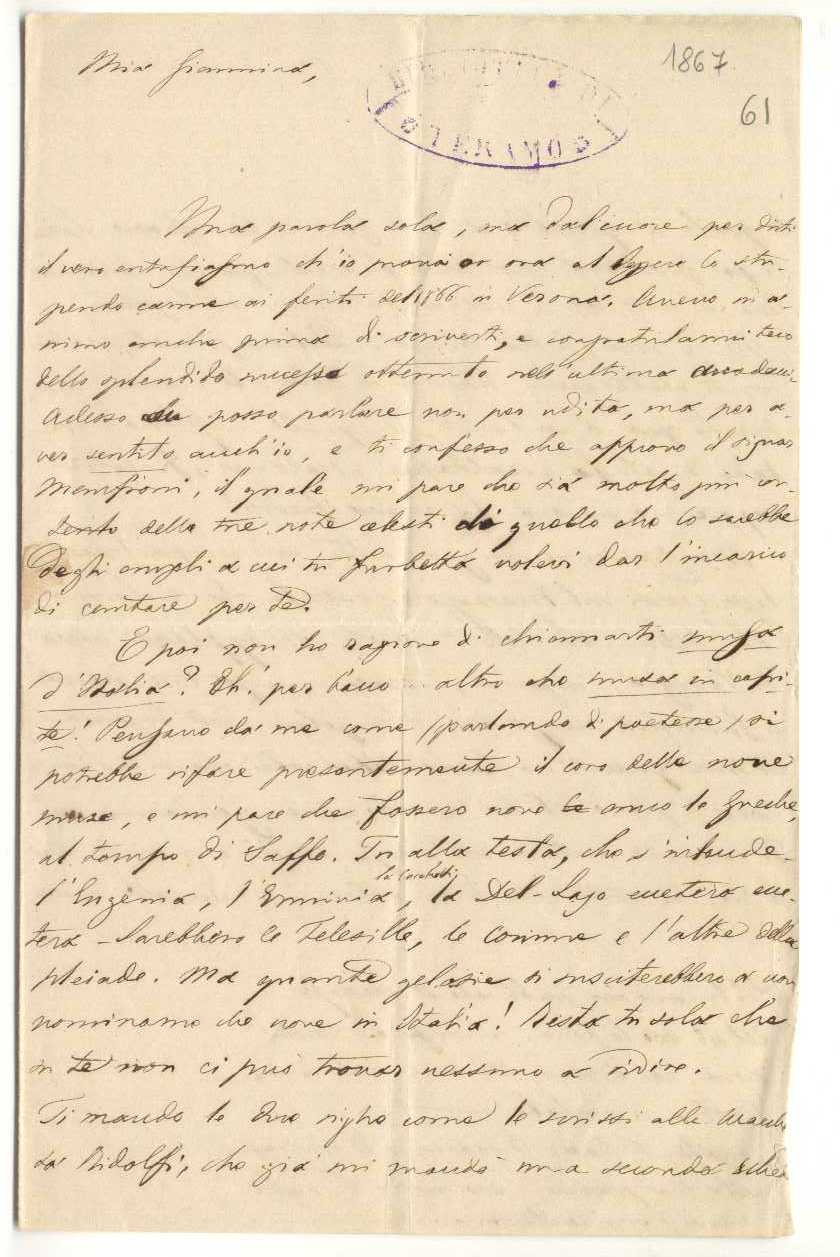 1867
61
Mia Giannina,
TERAMO
Una parola sola, ma dal cuore per dirti
il vero entusiasmo ch'io provai or ora al leggere lo stu-
pendo carme ai feriti del 1866 in Verona. Avevo in a-
nimo anche prima di scriverti, e congratularmi teco
dello splendido successo ottenuto nell'ultima
Adesso posso parlare non per udita, ma per a-
ver sentito anch'io, e ti confesso che approvo il signor
il quale mi pare che sia molto più con-
tento delle tre note celesti di quello che lo sarebbe
degli angeli a cui tu furbetta volevi dar l'incarico
di cantare per te.
E poi non ho ragione di chiamarti musa
d'Italia? Eh! per bacco altro che musa in
Pensavo da me come (parlando di poetesse) si
potrebbe rifare presentemente il coro delle nove
muse, e mi pare che fossero nove anco le greche,
al tempo di Saffo. Tu alla testa, che s'intende.
l'Eugenia, l'Erminia, la Del-Lajo eccetera ecce-
tera - Sarebbero le Telesille, le Corinne e l'altre della
pleiade. Ma quante gelosie si susciterebbero a non
nominarne che nove in Italia! Resta tu sola che
in te non ci può trovar nessuno a ridire.
Ti mando le due righe come le scrissi alla
Ridolfi, che già mi mandò una seconda